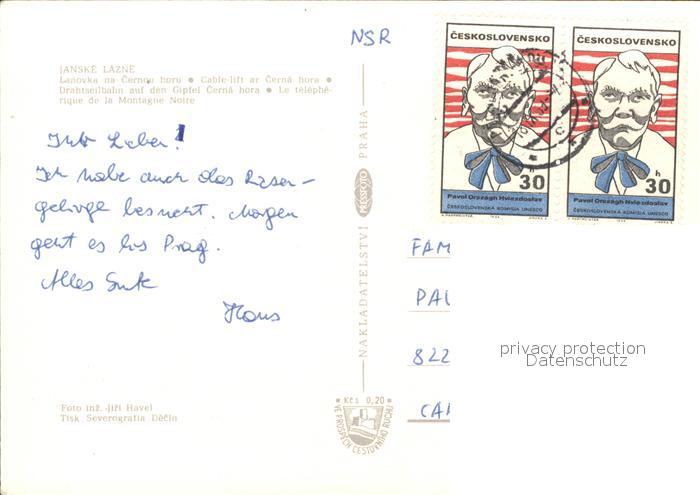 NSR
JANSKÉ LÁZNĚ
Lanovka na Černou horu • Cable-lift ar Černá hora •
Drahtseilbahn auf den Gipfel Černá hora • Le téléphé-
rique de la Montagne Noire
Ihr Lieben!
Ich habe auch das Riesen-
gebirge besucht. Morgen
geht es bis Prag.
Alles Gute
Hans
Foto inž. Jiří Havel
Tisk Severografia Děčín
NAKLADATELSTVÍ PRESSFOTO PRAHA
Kčs 0,20
VE PROSPĚCH CESTOVNÍHO RUCHU
ČESKOSLOVENSKO
30 h
Pavol Országh Hviezdoslav
ČESKOSLOVENSKÁ KOMISIA UNESCO
ČESKOSLOVENSKO
30 h
Pavol Országh Hviezdoslav
ČESKOSLOVENSKÁ KOMISIA UNESCO
FAM
PAU
822
CAM
privacy protection
Datenschutz